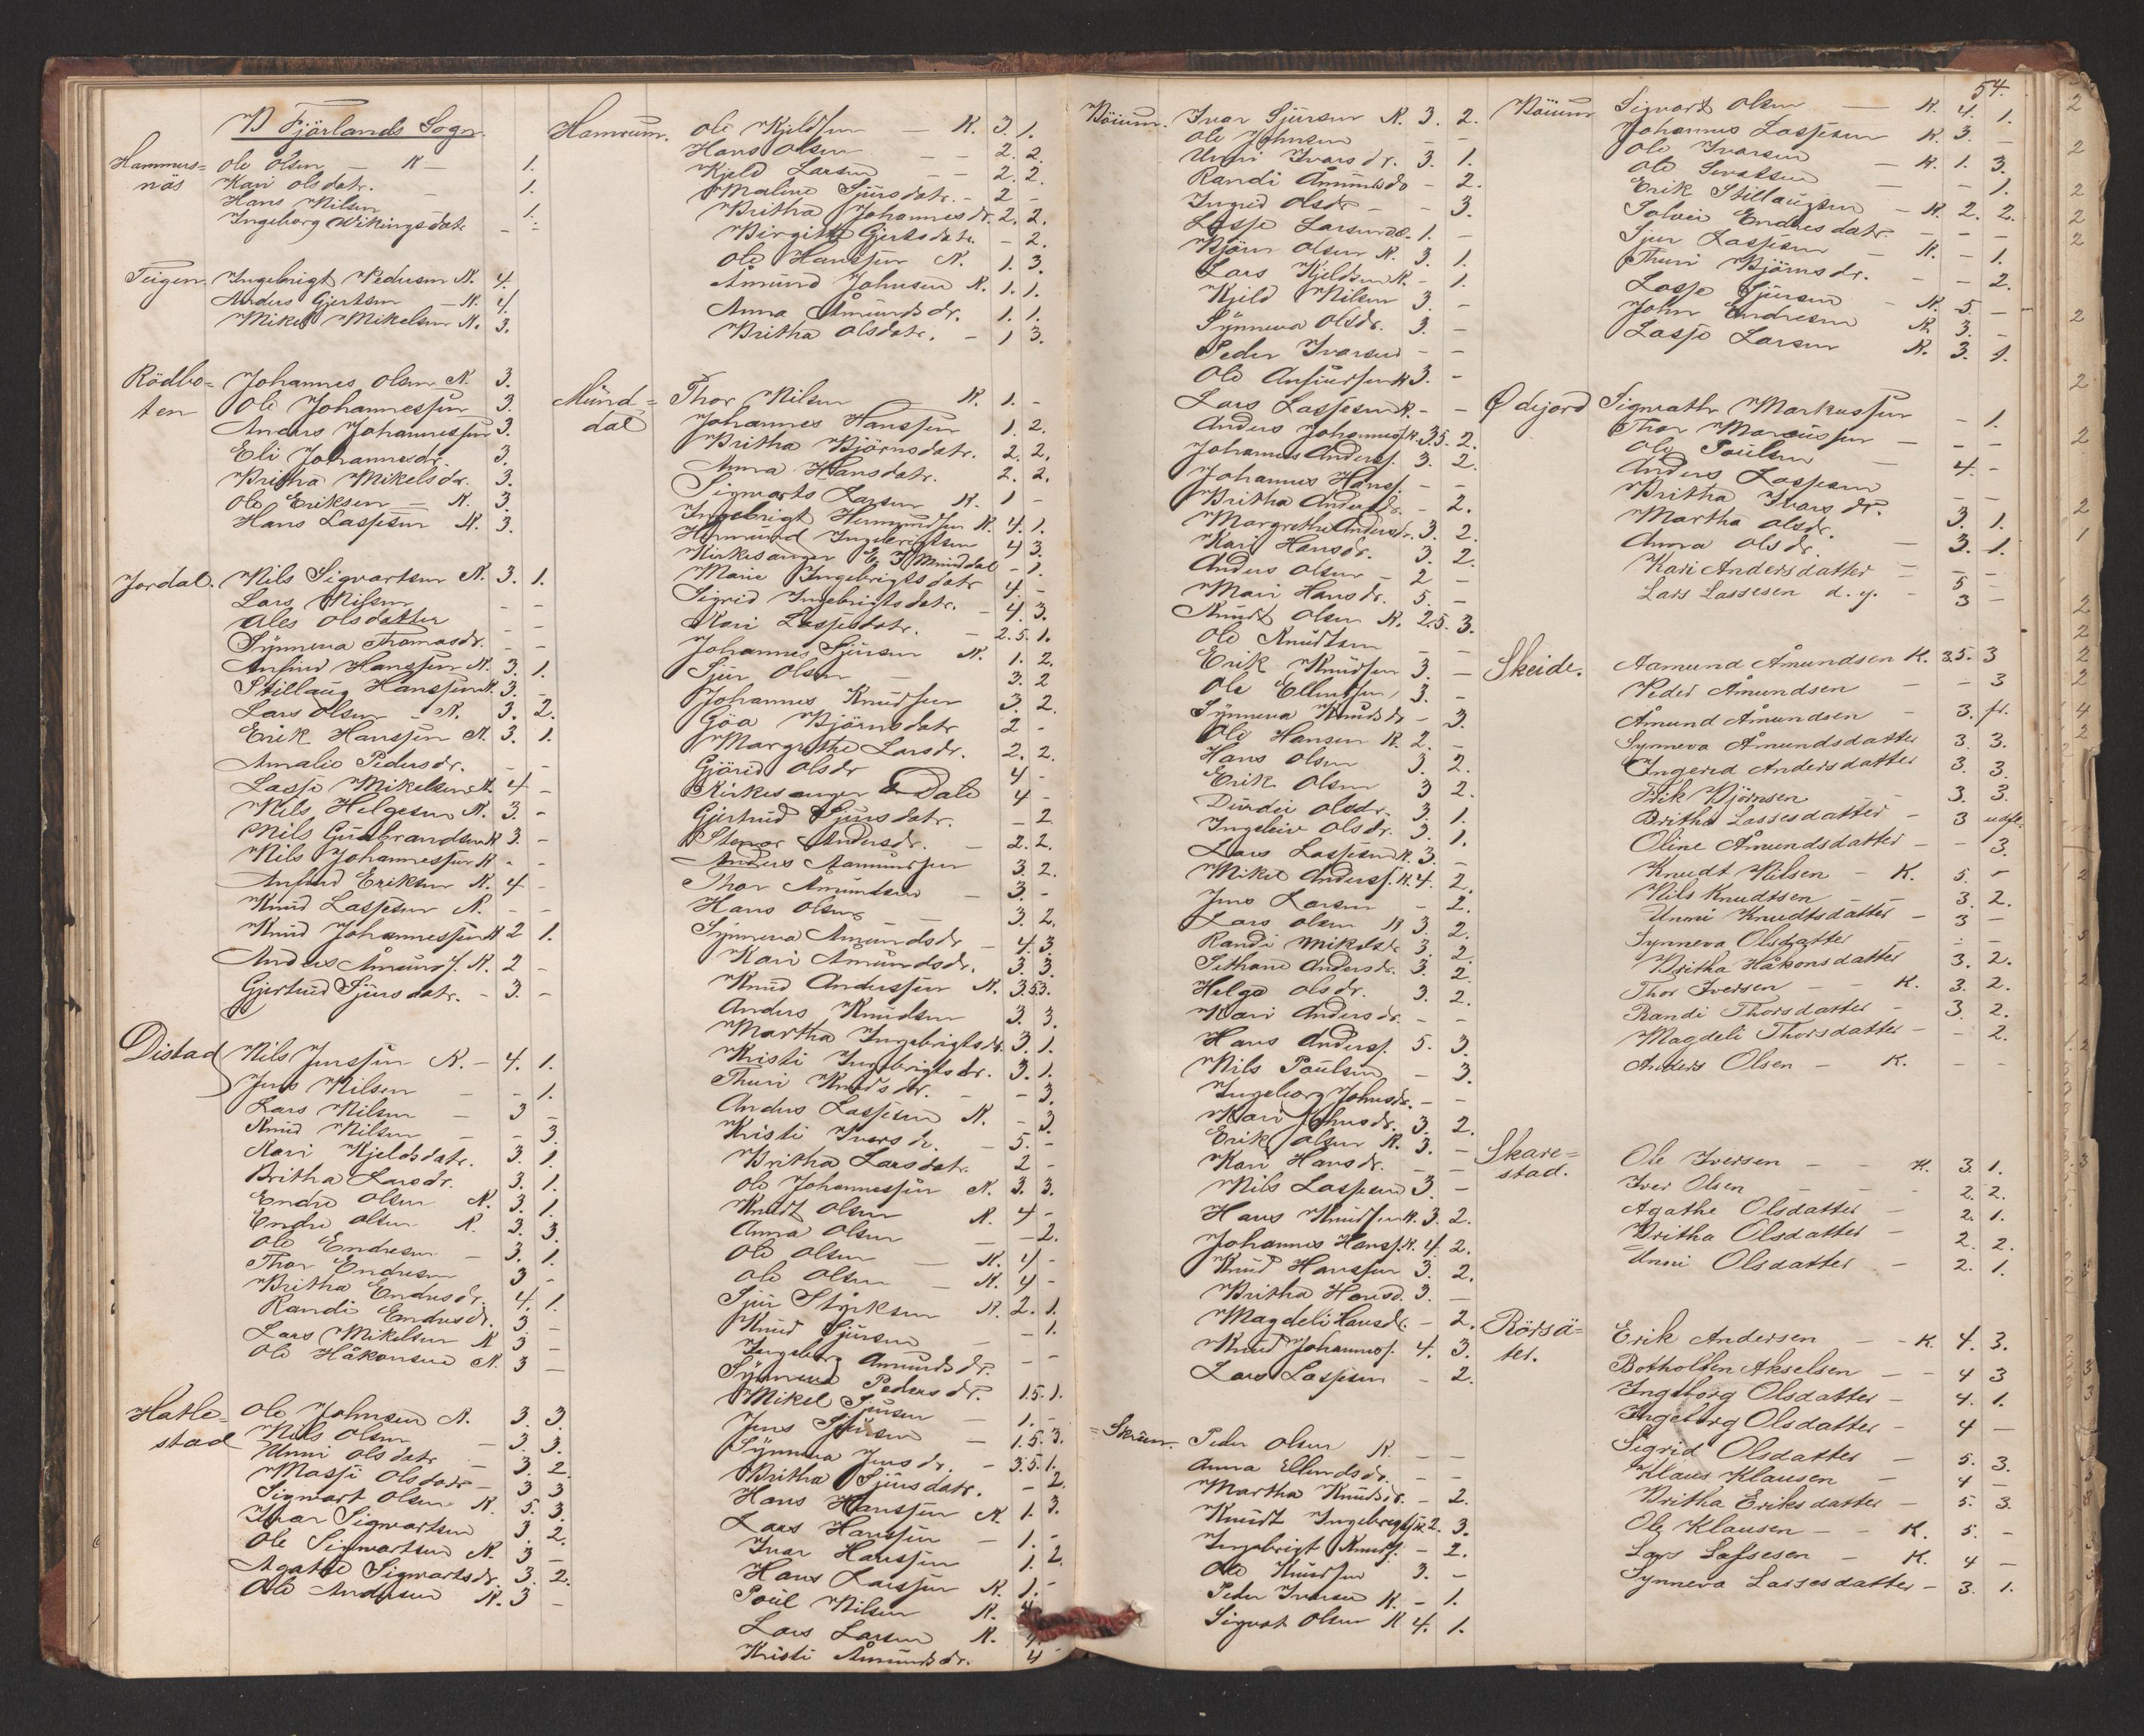 B Fjörlands Sogn.
Hammers= Ole Olsen — K — 1.
näs Kari Olsdatr. 1.
Hans Nilsen 1.
Ingeborg Wikingsdatr - -
Teigen. Ingebrigt Pedersen K. 4.
Anders Gjertsen — K. 4.
Mikel Mikelsen K. 3.
Rödbo= Johannes Olsen K. 3.
ten Ole Johannessen 3.
Anders Johannessen 3.
Eli Johannesdr. 3.
Britha Mikelsdr. 3.
Ole Eriksen — K. 3.
Hans Lassesen K. 3.
Jordal. Nils Sigvartsen K. 3. 1.
Lars Nilsen - -
Ales Olsdatter - -
Synneva Thomasdr. - -
Anfind Hanssen K. 3. 1.
Stillaug Hanssen K. 3. -
Lars Olsen - K. 3. 2.
Erik Hanssen K. 3. 1.
Amalie Pedersdr. - -
Lasse Mikelsen K. 4 -
Nils Helgesen K. 3. -
Nils Gudbrandsen K 3. -
Nils Johannessen K - -
Anfind Eriksen K. 4 -
Knud Lassesen K. - -
Knud Johannessen K 2 1.
Anders Åmunds. K. 2 -
Gjertrud Sjursdatr. - 3. -
Distad Nils Jenssen K. - 4. 1.
Jens Nilsen - - 1.
Lars Nilsen - 3 -
Knud Nilsen - - 3.
Kari Kjeldsdatr. 3. 1.
Britha Larsdr. 3. 1.
Endre Olsen K. 3. 1.
Endre Olsen K. 3. 3.
Ole Endresen - 3. 1.
Thor Endresen 3 -
Britha Endresdr. 4. 1.
Randi Endresdr. 3 -
Lars Mikelsen K 3 -
Ole Håkonsen K. 3 -
Hatle= Ole Johnsen K. 3. 3.
stad Nils Olsen - 3. 3.
Unni Olsdatr - 3. 2.
Massi Olsdatr - 3 3
Sigvart Olsen K. 5. 3.
Ivar Sigvartsen 3. 2.
Ole Sigvartsen K. 3 -
Agathe Sigvartsdr. 3. 2.
Ole Andersen K. 3 -
Hamrum. Ole Kjeldsen — K. 3. 1.
Hans Olsen - - 2. 2.
Kjeld Larsen - - 2. 2.
Maline Sjursdatr. - 2 -
Britha Johannesdr. 2. 2.
Birgitte Gjertsdatr. - 2.
Ole Hanssen K. 1. 3.
Åmund Johnsen K. 1. 1.
Anna Åmundsdr. 1. 1.
Britha Olsdatr. - 1 3.
Mund= Thor Nilsen K. 1. -
dal Johannes Hanssen 1. 2.
Britha Björnsdatr. 2. 2.
Anna Hansdatr. 2. 2.
Sigvarts Larsen K. 1 -
Ingebrigt Hermundsen K. 4. 1.
Hermund Ingebrigtsen 4 3.
Kirkesanger E. J. Munddal - 1.
Marie Ingebrigtsdatr 4. -
Sigrid Ingebrigtsdatr. - 4. 3.
Kari Lassesdatr. - 2.5. 1.
Johannes Sjursen K. 1. 2.
Sjur Olsen - 3. 2
Johannes Knudsen 3. 2.
Göa Björnsdatr 2 -
Margrethe Larsdr. 2. 2.
Gjörid Olsdr 4 -
Kirkesanger Dale 4 -
Gjertrud Sjursdatr. - 2
Andersdr. - 2. 2.
Anders Aamundsen 3. 2.
Thor Amundsen - 3. -
Hans Olsen - - 3. 2.
Synneva Amundsdr - 4. 3.
Kari Åmundsdr. 3. 3.
Knud Anderssen K. 3.5 3.
Anders Knudsen 3. 3.
Martha Ingebrigtsdr. 3. 1.
Kristi Ingebrigtsdr. 3. 1.
Thuri Knudsdr. - - 3.
Anders Lassesen K. - 3.
Kristi Iversdr. - 5. -
Britha Larsdatr. 2 -
Ole Johannessen K. 3. 3.
Knudt Olsen K. 4 -
Anna Olsen - - 2.
Ole Olsen — K. 4 -
Ole Olsen — K. 4 -
Sjur Styrksen K. 2. 1.
Knud Sjursen - - 1.
Ingeborg Amundsdr. - -
Synneva Pedersdr. 1.5. 1.
Mikel Sjursen - 1. -
Jens Sjursen - 1.5. 3.
Synneva Jensdr. - 3.5. 1.
Britha Sjursdatr. - 2.
Hans Hanssen K. 1. 3.
Lars Hanssen - 1. -
Ivar Hanssen 1. 2.
Hans Larssen K. 1. -
Poul Nilsen K. 4.
Lars Larsen K. 4.
Kristi Åmundsdr. 4
Böium. Ivar Sjursen K. 3. 2.
Ole Johnsen - -
Unni Ivarsdr. 3. 1.
Randi Åmundsdr - 2.
Ingrid Olsdr - - 3.
Lasse Larsen 1. -
Björn Olsen K. 3. 1.
Lars Kjeldsen K. - 1.
Kjeld Nilsen 3 -
Synneva Olsdr. 3. -
Peder Ivarsen - -
Ole Anfindsen K 3. -
Lars Lassesen K. - -
Anders Johanness. K. 3.5. 2.
Johannes Anderss. 3. 2.
Johannes Hanss. - -
Britha Andersdr. - 2.
Margrethe Andersdr. 3. 2.
Kari Hansdr. 3. 2.
Anders Olsen - 2 -
Mari Hansdr. 5. -
Knudt Olsen K. 2.5. 3.
Ole Knudtsen - -
Erik Knudsen 3. -
Ole Ellensen, 3. -
Synneva Knudsdr - 3.
Ole Hansen K. 2. -
Hans Olsen 3. 2.
Erik Olsen 3 2.
Durdei Olsdr. 3. 1.
Ingeleiv Olsdr. 3. 1.
Lars Lassesen K. 3. -
Mikel Anderss. K. 4. 2.
Jens Larsen - 2.
Lars Olsen K 3. 2.
Randi Mikelsdr 3. 2.
Andersdr. 3. 2.
Helga Olsdr. 3. 2.
Kari Andersdr. - -
Hans Anderss. 5. 3.
Nils Poulsen - 3.
Ingeborg Johnsdr. - -
Kari Johnsdr. 3. 2.
Erik Olsen K. 3. -
Kari Hansdr. - -
Nils Lassesen 3. -
Hans Knudsen K. 3. 2.
Johannes Hanss. K. 4. 2.
Knud Hanssen 3. 2.
Britha Hansd. 3. -
Magdeli Hansdr. - 2.
Knud Johanness. 4. 3.
Lars Lassesen - 2.
= Skrum. Peder Olsen K - -
Anna Ellendsdr. - -
Martha Knudsdr. - 2.
Knudt Ingebrigts. K. 2. 3.
Ingebrigt Knuds. - 2.
Ole Knudsen 3. -
Peder Ivarsen K. - 1.
Sigvat Olsen K 4. 1.
54.
Böium Sigvart Olsen — K. 4. 1.
Johannes Lassesen K. 3. -
Ole Ivarsen - K. 1. 3.
Ole Sivatsen - - 1.
Erik Stillaugsen - K. 2. 2.
Solvei Endresdatr. - - -
Sjur Lassesen K. - 1.
Thuri Björnsdr. - - 2.
Lasse Sjursen - K. 5. -
John Endresen K. 3. -
Lasse Larsen K. 3. 1.
Ødejord Sigvathr Markussen - 1.
Thor Marcussen - - -
Ole Poulsen - 4. -
Anders Lassesen - -
Britha Ivarsdr. 3. 1.
Martha Olsdr. - 3. 1.
Anna Olsdr. - - -
Kari Andersdatter - 5 -
Lars Lassesen d. y. - 3 -
Skeide. Aamund Åmundsen K. 3.5. 3
Peder Åmundsen - - 3
Åmund Åmundsen - 3. fl.
Synneva Åmundsdatter 3. 3.
Ingered Andersdatter 3. 3.
Erik Björnsen - 3. 3.
Britha Lassesdatter - 3 udfl.
Oline Åmundsdatter - - 3.
Knudt Nilsen - K. 5. -
Nils Knudtsen - 3. 2.
Unni Knudtsdatter - 3 -
Synneva Olsdatter - - -
Britha Håkonsdatter 3. 2.
Thor Iversen - - K. 3. 2.
Randi Thorsdatter - 3. 2.
Magdeli Thorsdatter - - 2.
Anders Olsen - K. - -
Skare= Ole Iversen - - K. 3. 1.
stad. Iver Olsen - - - 2. 2.
Agathe Olsdatter - 2. 1.
Britha Olsdatter - 2. 2.
Unni Olsdatter - 2. 1.
Rörsä= Erik Andersen - - K. 4. 3.
ter. Botholten Akselsen - - 4 3
Ingeborg Olsdatter - 4. 1.
Ingeborg Olsdatter - 4 -
Sigrid Olsdatter - 5. 3.
Klaus Klausen - 4 -
Britha Eriksdatter - 5. 3.
Ole Klausen - - K. 5. -
Lars Lassesen - K. 4 -
Synneva Lassesdatter - 3. 1.